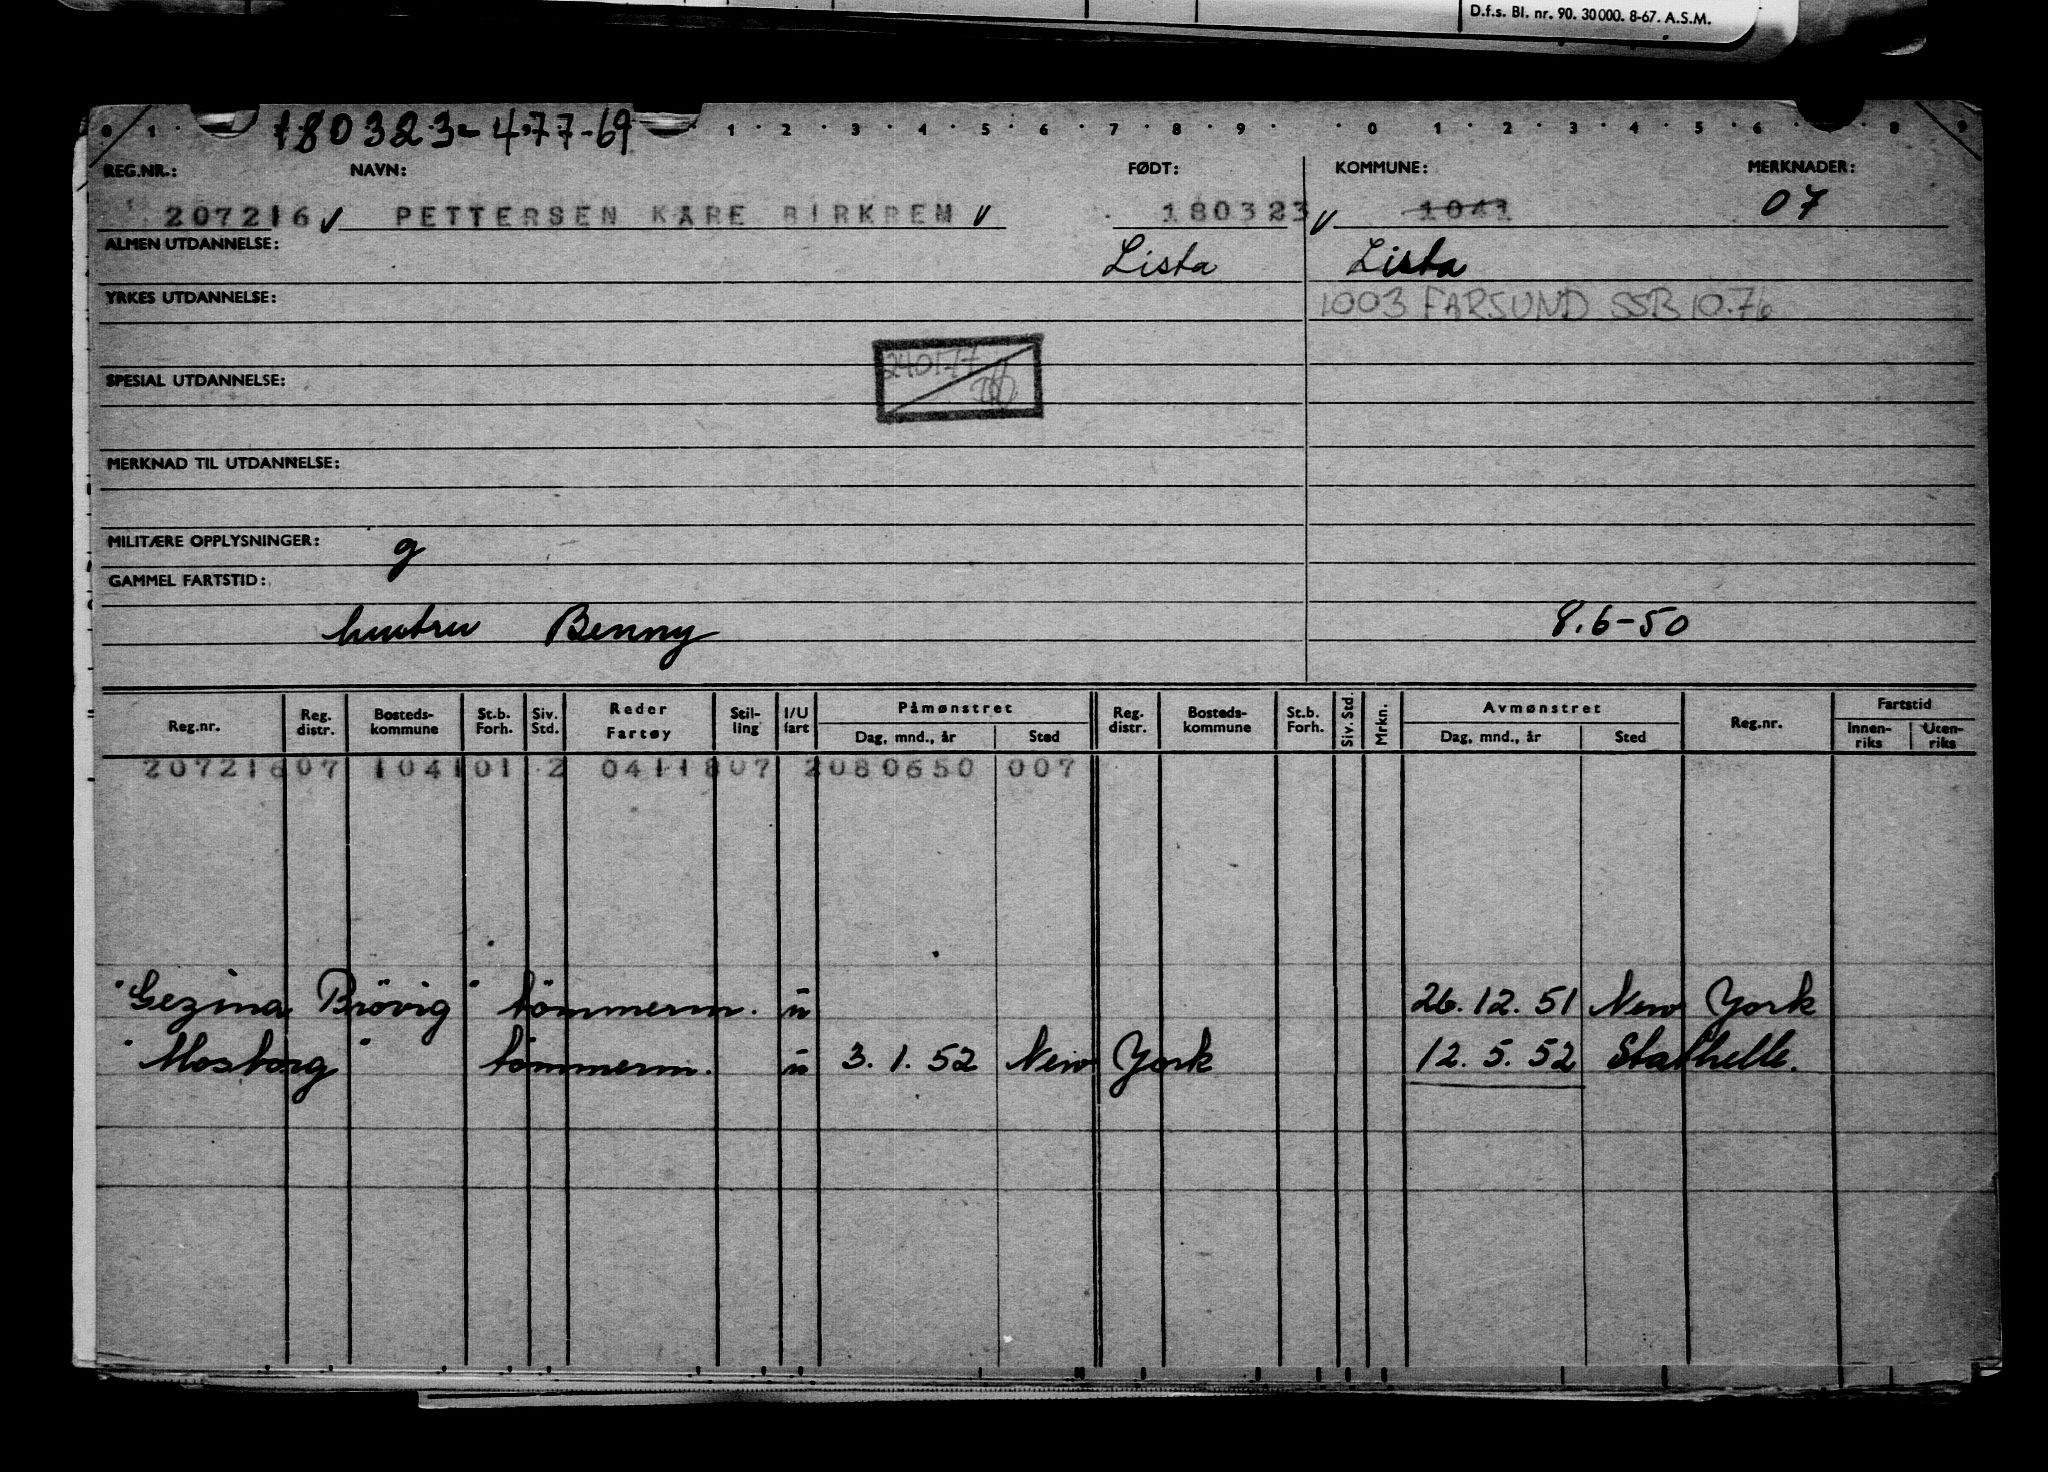 D.f.s. Bl. nr. 90. 30000. 8-67. A.S.M.
0 1 1 2 3 4 5 6 7 8 9 0 1 2 3 4 5 6 8 9
180323-477-69
REG.NR.: NAVN: FØDT: KOMMUNE: MERKNADER:
207216 v PETTERSEN KÅRE BIRKREM v 180323 v 1041 07
ALMEN UTDANNELSE: Lista Lista
YRKES UTDANNELSE: 1003 FARSUND SSB 10.76
240177
SPESIAL UTDANNELSE:
MERKNAD TIL UTDANNELSE:
MILITÆRE OPPLYSNINGER: g
GAMMEL FARTSTID:
hustru Benny 8.6-50
Reg.nr. Reg. distr. Bosteds-kommune St.b. Forh. Siv. Std. Reder Fartøy Stil-ling I/U fart Påmønstret Dag, mnd., år Sted Reg. distr. Bosteds-kommune St.b. Forh. Siv. Std. Mrkn. Avmønstret Dag, mnd., år Sted Reg.nr. Fartstid Innen-riks Uten-riks
207216 07 1041 01 2 0411 807 2 080650 007
"Gezina Brövig" tömmerm. u 26.12.51 New York
"Mosborg" tömmerm. u 3.1.52 New York 12.5.52 Stathelle.